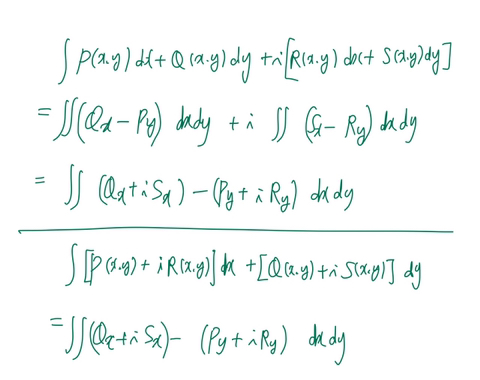 ∫ P(x.y) dx + Q(x.y) dy + i[R(x.y) dx + S(x.y)dy]
= ∬(Qx − Py) dxdy + i ∬ (Sx − Ry) dxdy
= ∬ (Qx + iSx) − (Py + iRy) dxdy
∫ [P(x.y) + iR(x.y)] dx + [Q(x.y) + iS(x.y)] dy
= ∬(Qx + iSx) − (Py + iRy) dxdy